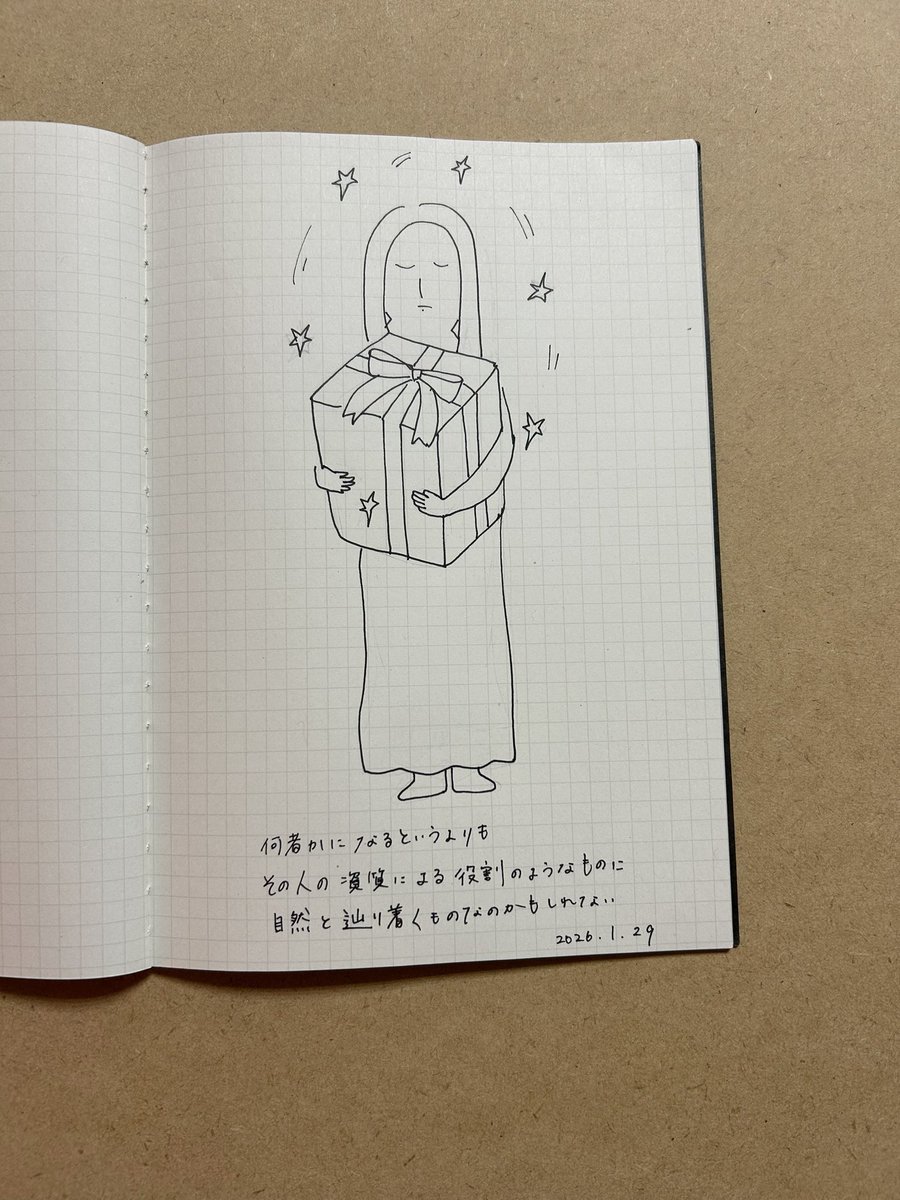 何者かになるというよりも
その人の資質による役割のようなものに
自然と辿り着くものなのかもしれない
2026.1.29